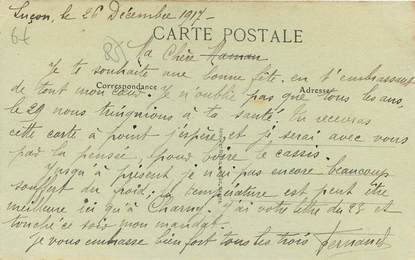 Luçon, le 26 Décembre 1917 -
64
CARTE POSTALE
Ma Chère Maman
Je te souhaite une bonne fête en t'embrassant
de tout mon cœur. Je n'oublie pas que tous les ans,
Correspondance
Adresse
le 29 nous trinquions à ta santé. Tu recevras
cette carte à point j'espère et je serai avec vous
par la pensée, pour boire le cassis.
Jusqu'à présent je n'ai pas encore beaucoup
souffert du froid; la température est peut être
meilleure ici qu'à Charny. J'ai votre lettre du 23 et
touché ce soir mon mandat.
Je vous embrasse bien fort tous les trois Fernand